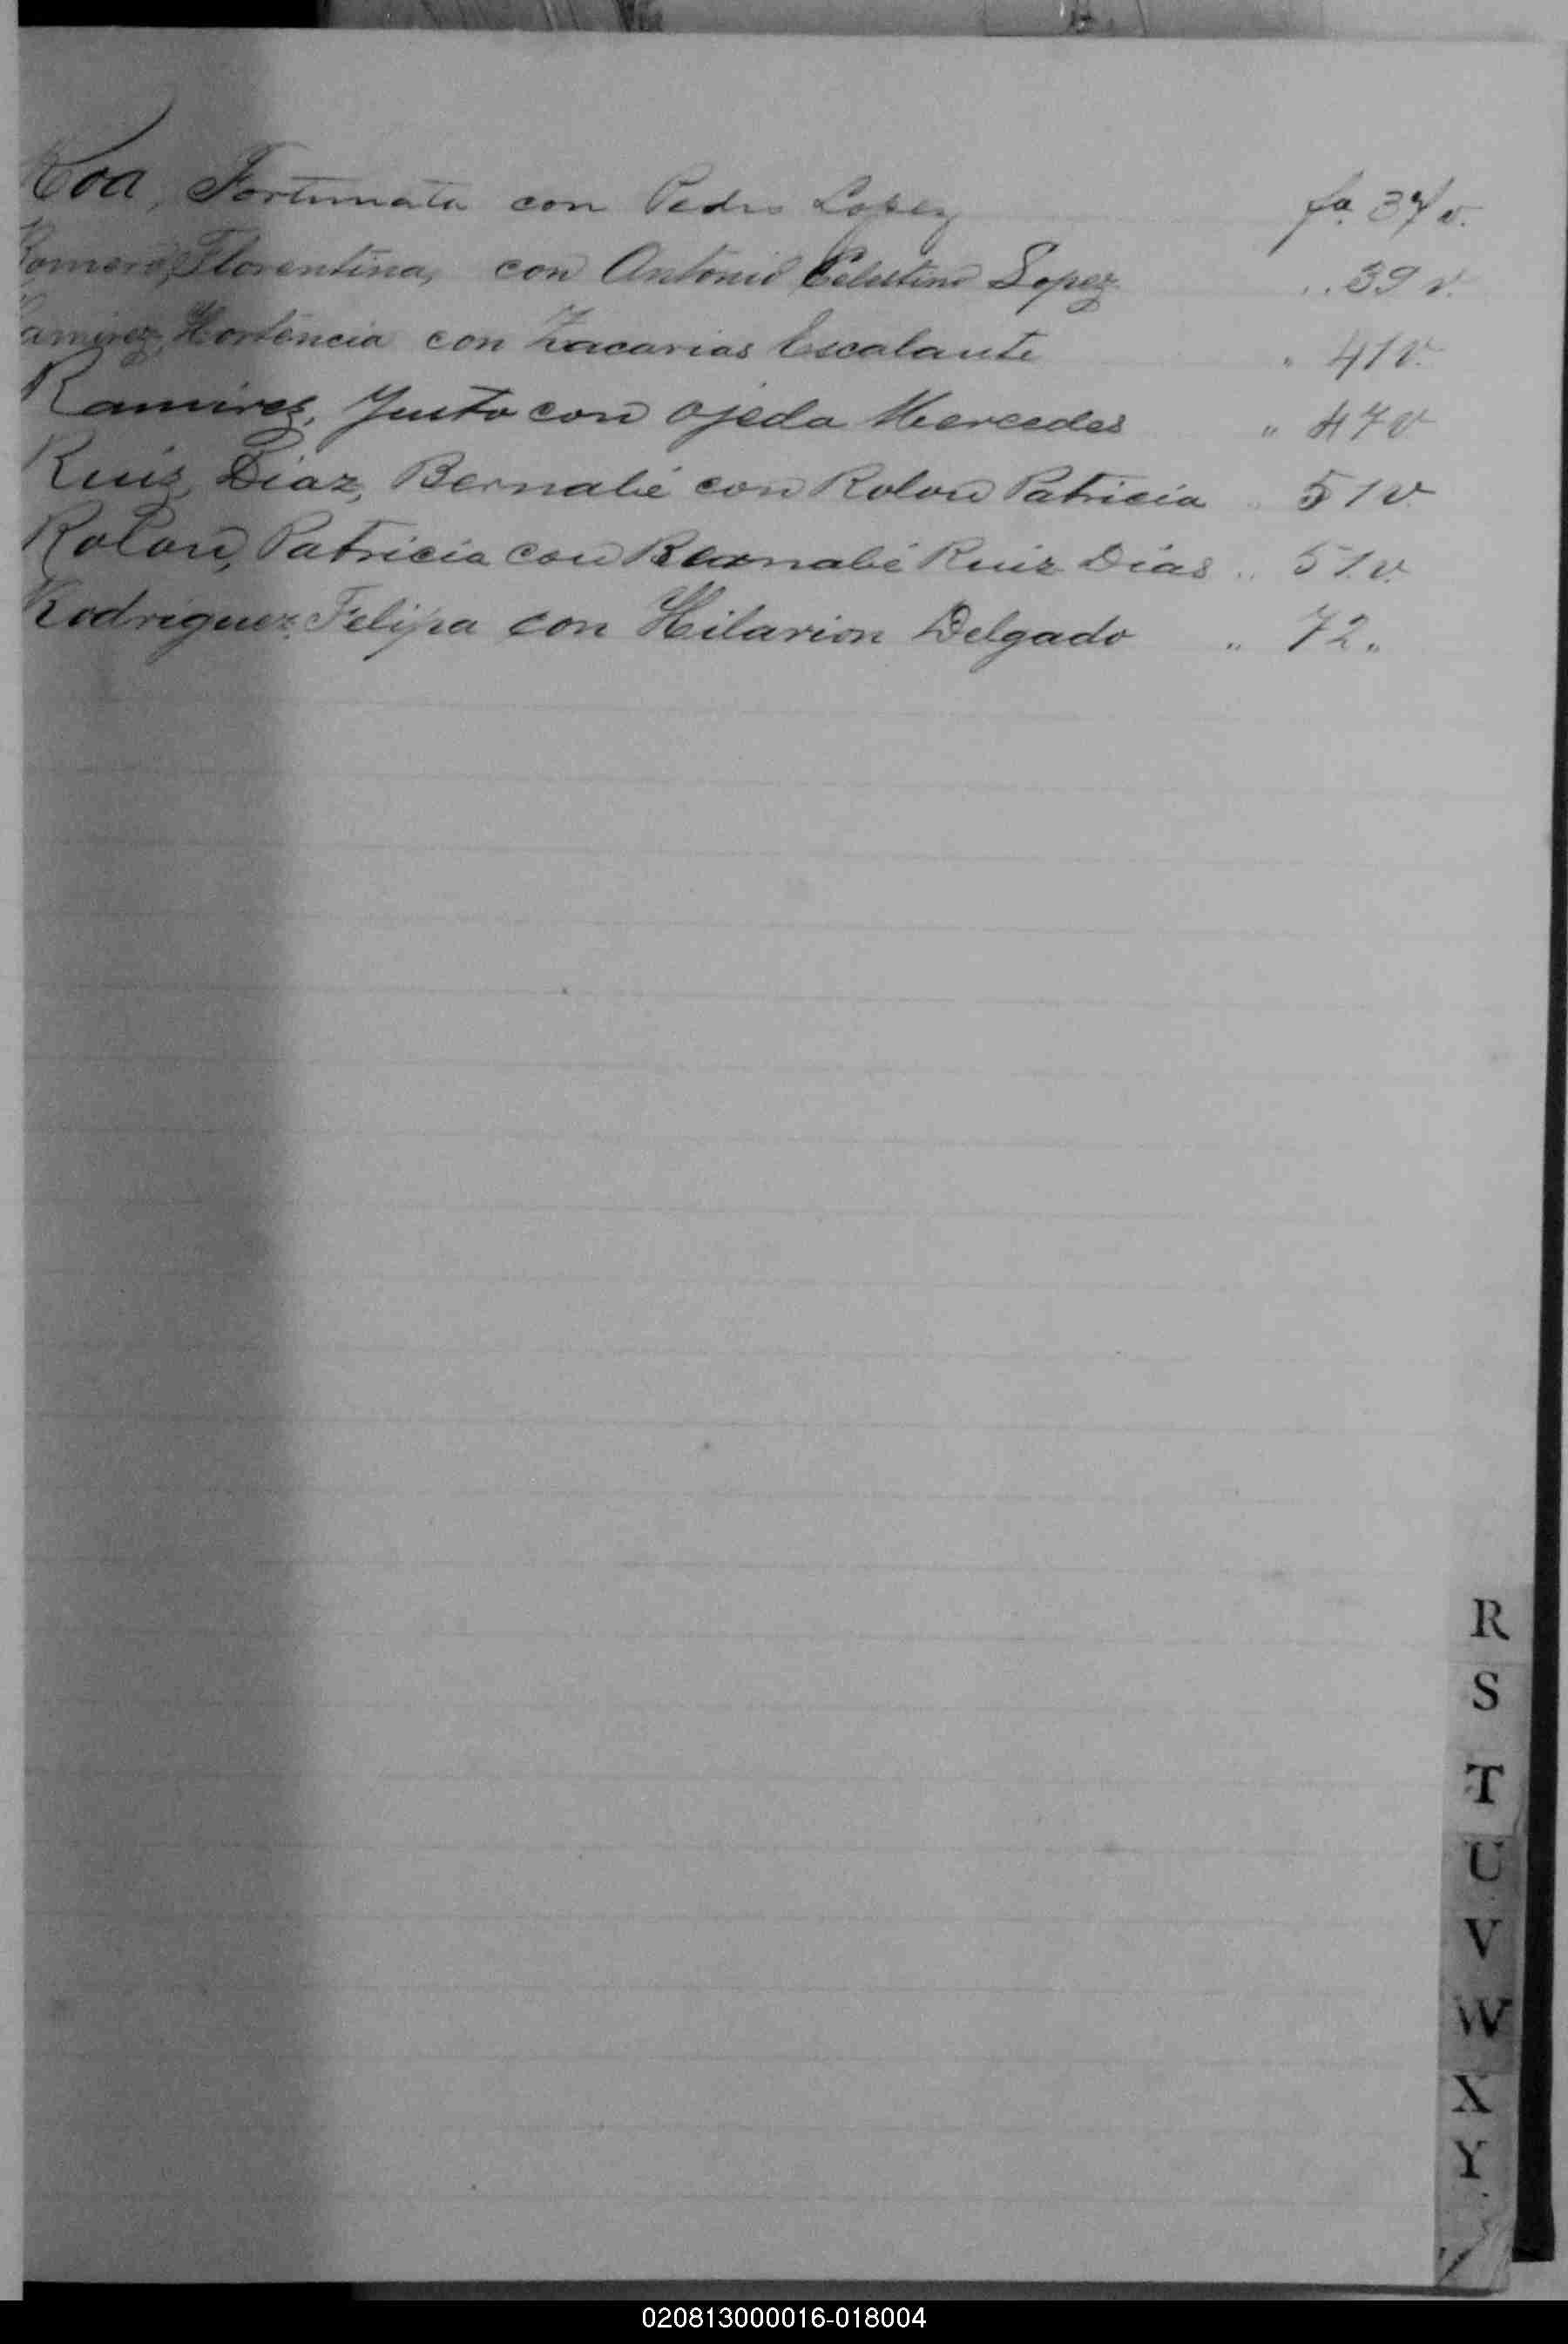 Roa, Fortunata con Pedro Lopez fo. 37 v.
Romero, Florentina, con Antonio Celestino Lopez .. 39 v.
Ramirez, Hortencia con Zacarias Escalante " 41 v.
Ramirez, Justo con Ojeda Mercedes " 47 v
Ruiz, Diaz, Bernabé con Rolon Patricia .. 51 v.
Rolon, Patricia con Bernabé Ruiz Dias .. 51. v.
Rodriguez, Felipa con Hilarion Delgado " 72 "
R
S
T
U
V
W
X
Y
020813000016-018004